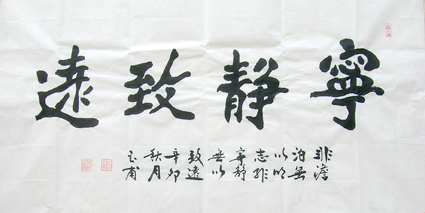 寧靜致遠
非澹
泊無
以明
志非
寧靜
無以
致遠
辛卯
秋月
甫